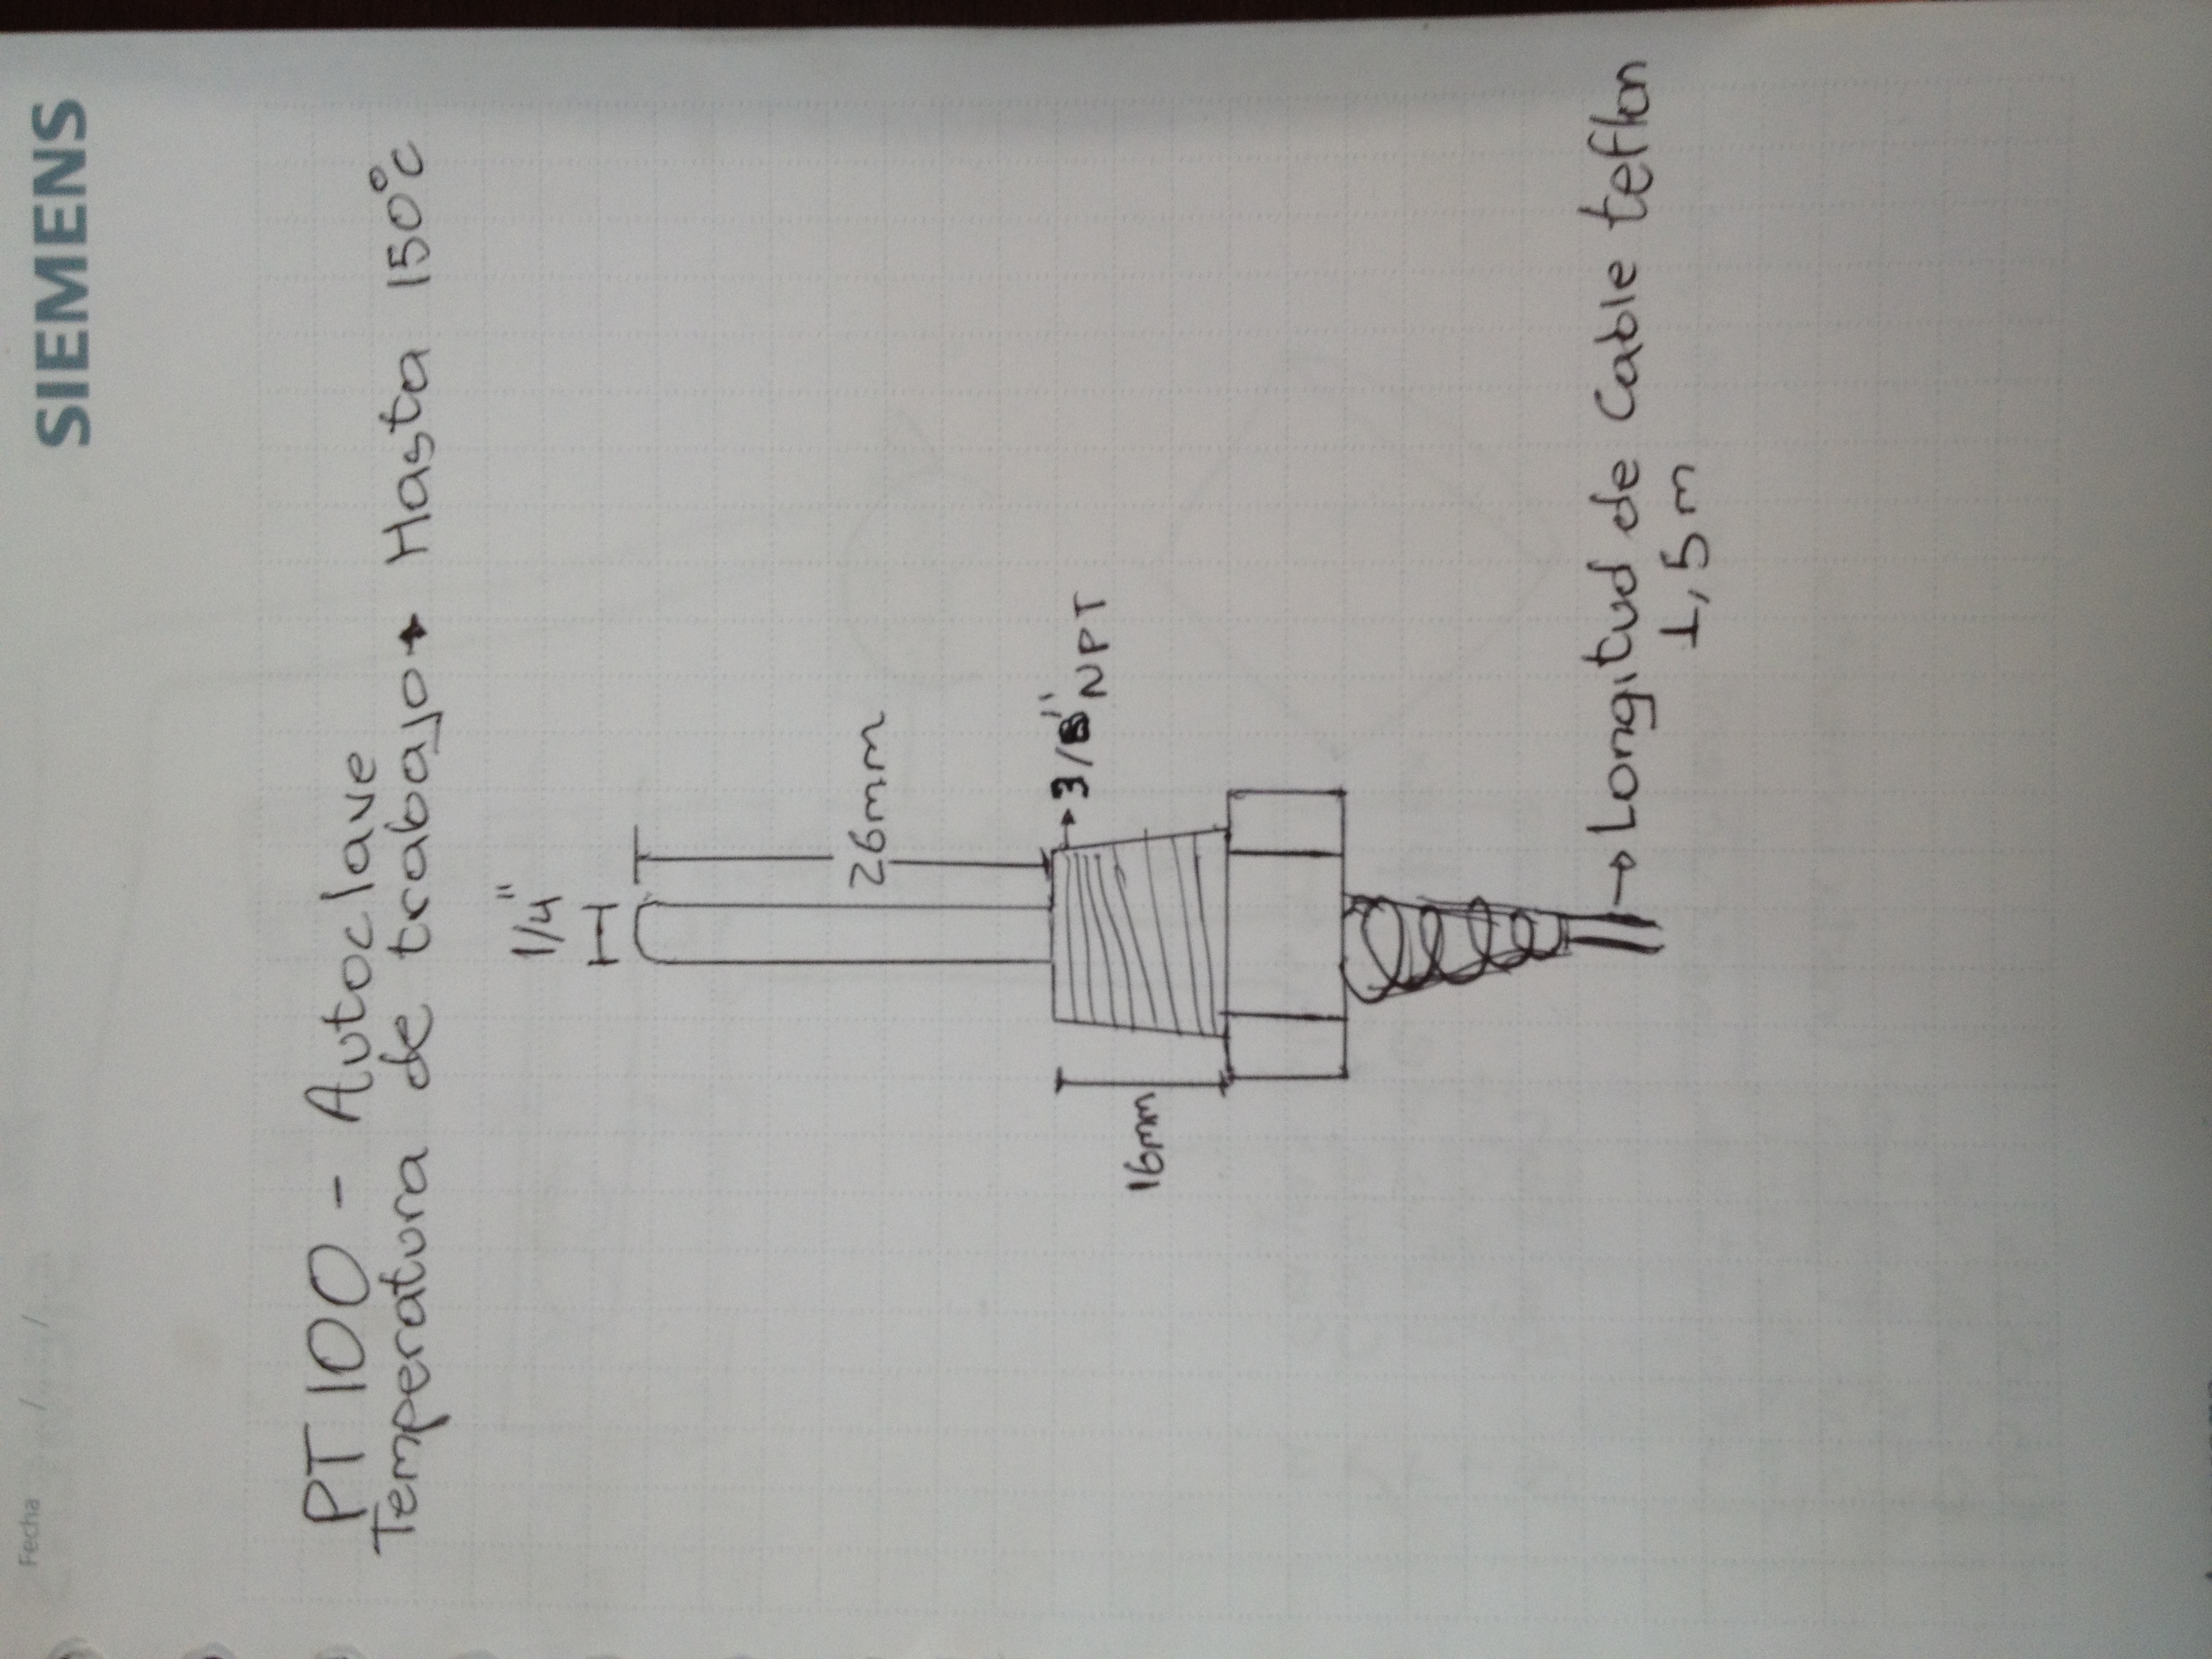 Fecha / /
SIEMENS
PT 100 - Autoclave
Temperatura de trabajo → Hasta 150°c
1/4"
26mm
3/8" NPT
16mm
Longitud de Cable teflon
1,5m